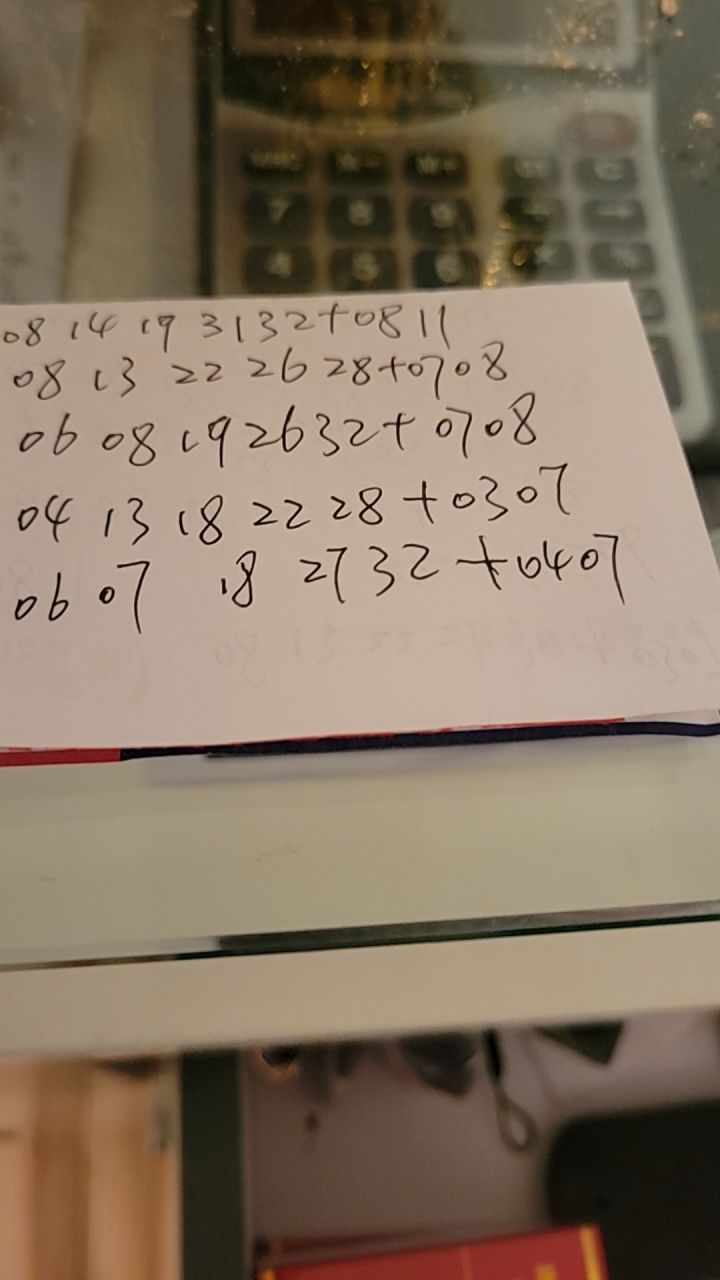 08 14 19 3132+0811
08 13 22 26 28+0708
06 08 192632+0708
04 13 18 22 28+0307
06 07 18 2732+0407